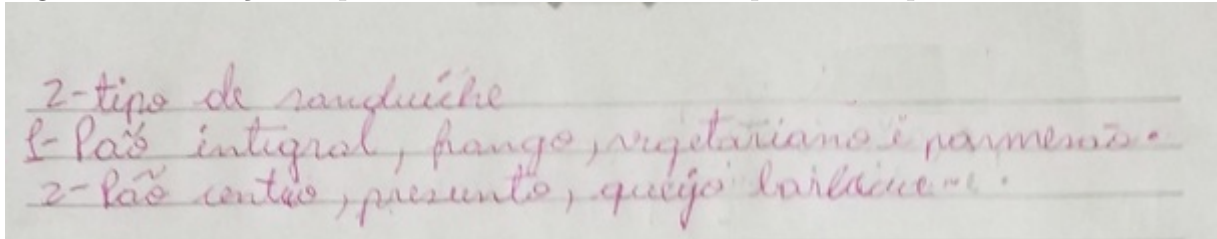 2-tipo de sanduíche
1-Paõ integral, frango, vegetariano e parmesaõ.
2-Paõ centeio, presunto, queijo